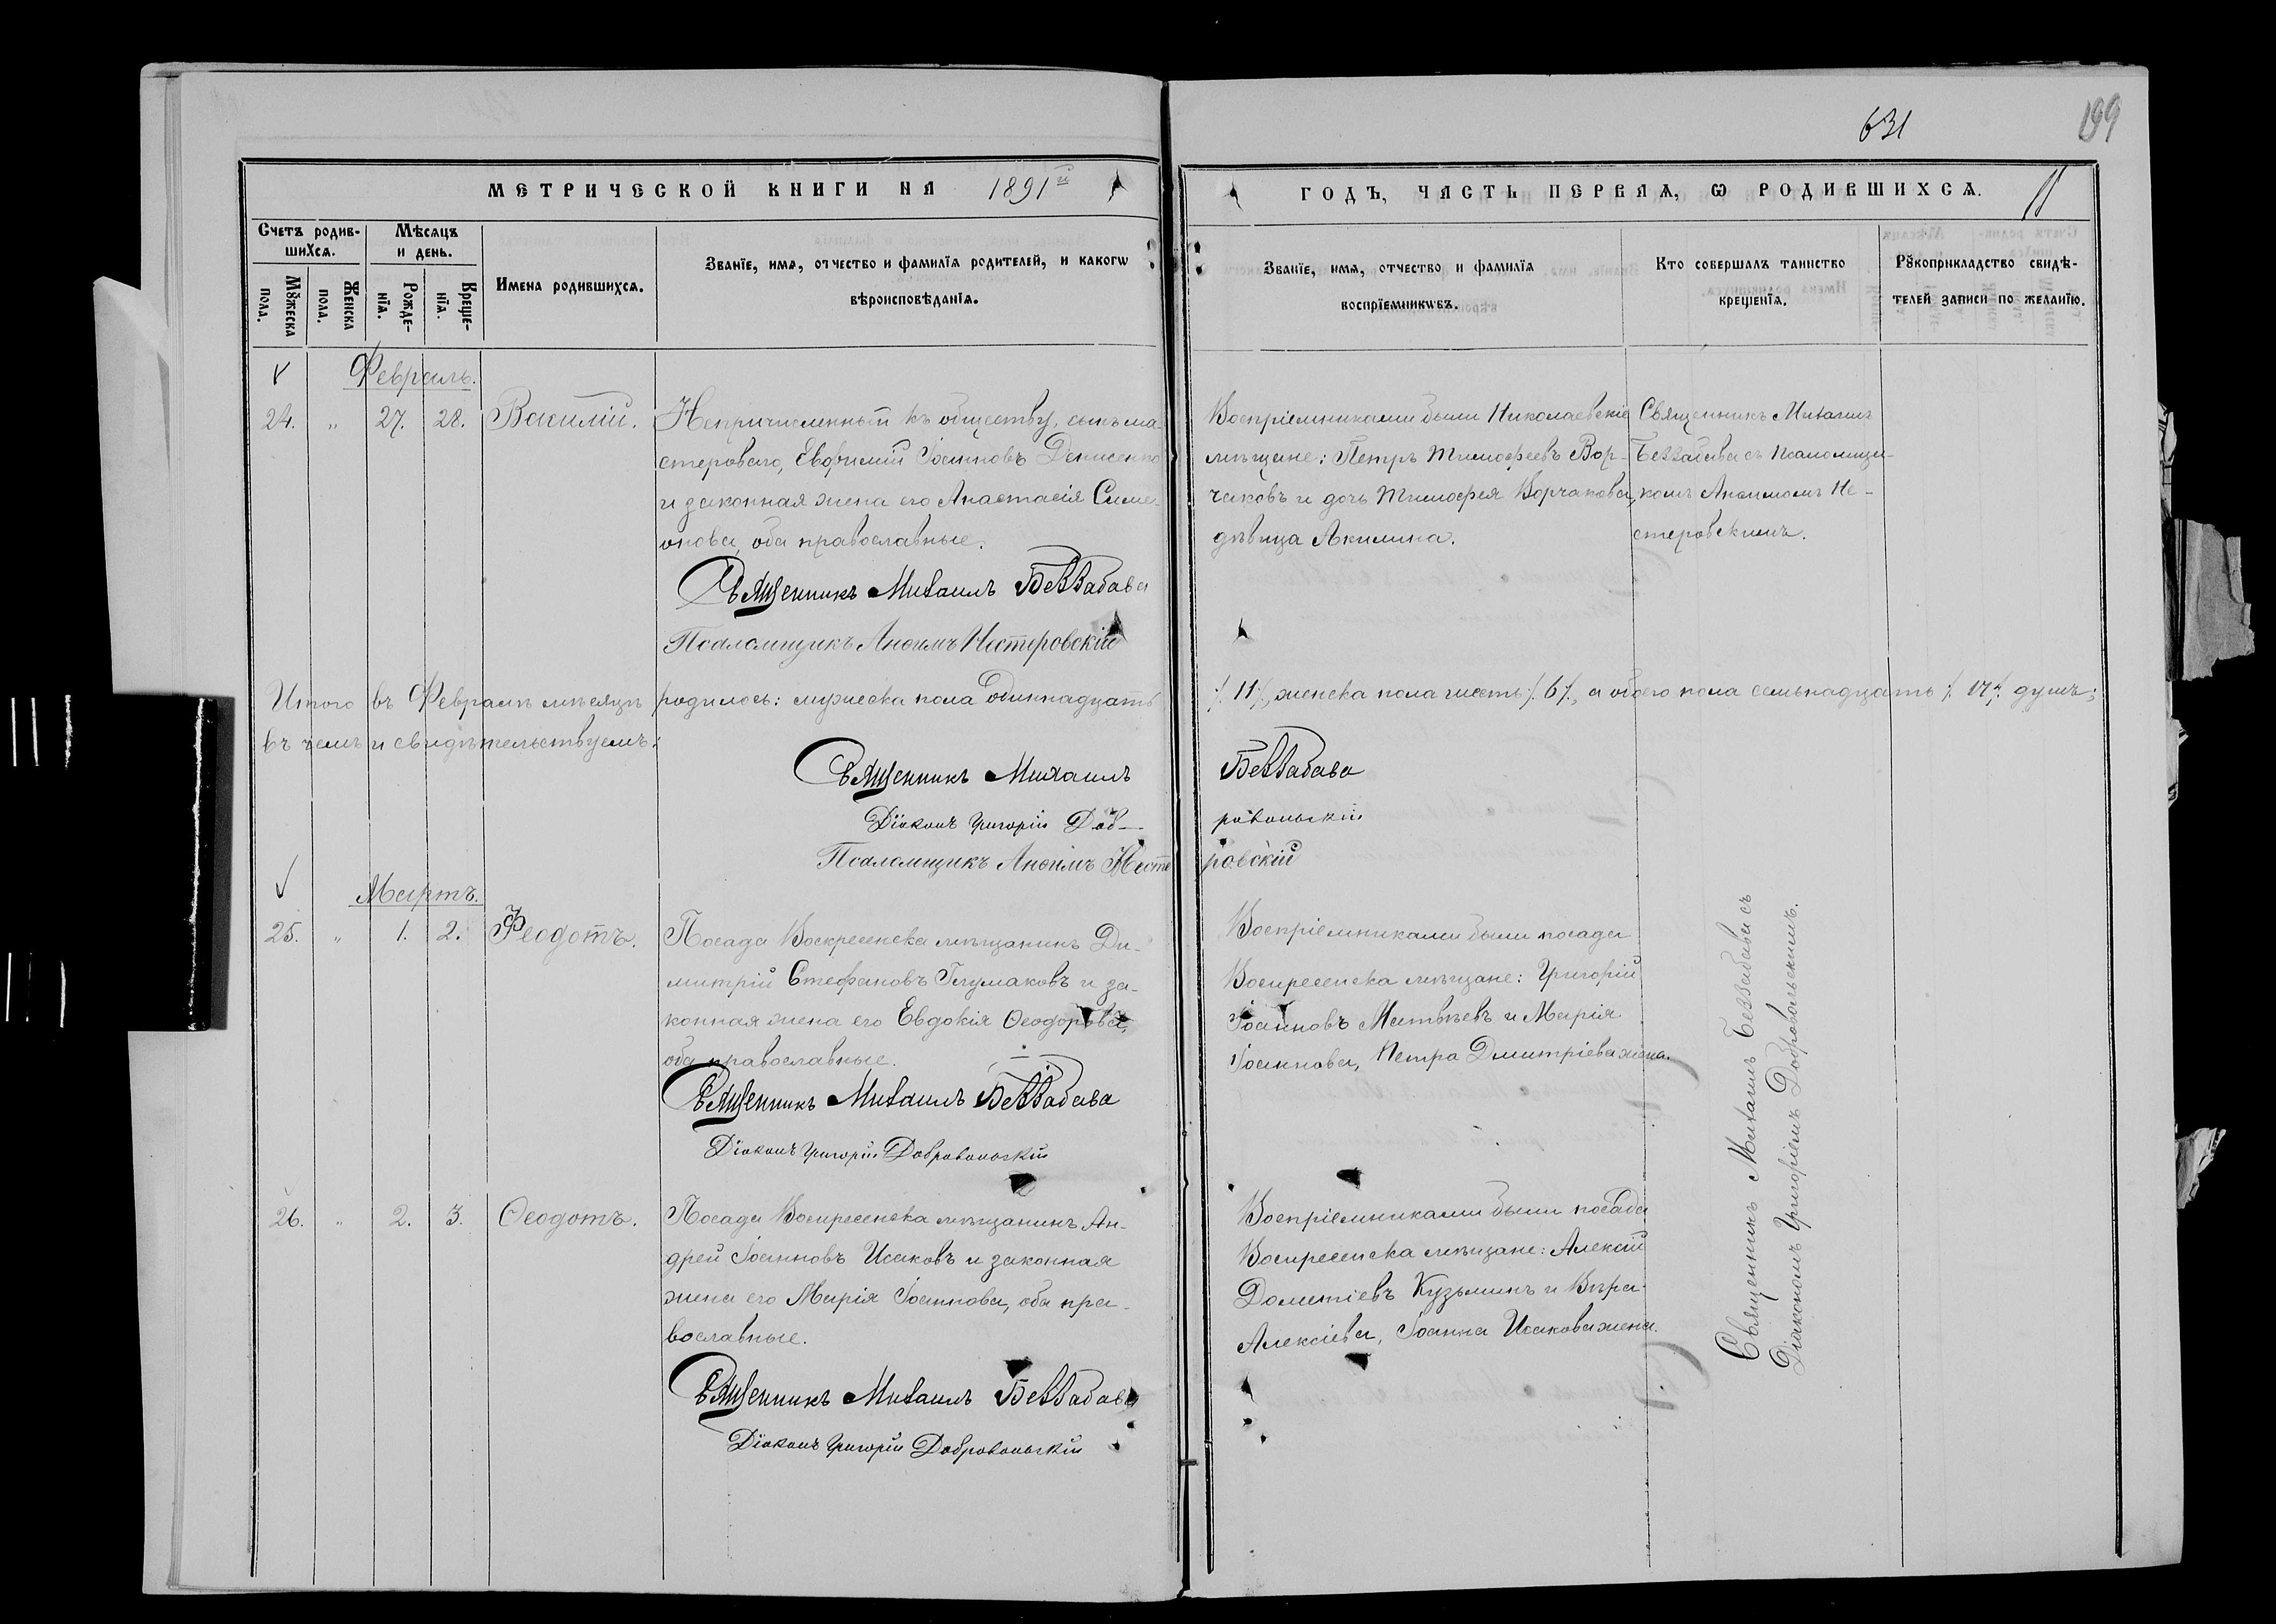 631
199
МЕТРИЧЕСКОЙ КНИГИ НА 1891й
ГОДЪ, ЧАСТЬ ПЕРВАЯ, Ѡ РОДИВШИХСѦ.
11
Счетъ родив-
шихсѧ.
Мѣсѧцъ
и день.
Мꙋжеска
пола.
Женска
пола.
Рожде-
нїѧ.
Креще-
нїѧ.
Имена родившихсѧ.
Званїе, имѧ, отчество и фамилїѧ родителей, и какогѡ
вѣроисповѣданїѧ.
Званїе, имѧ, отчество и фамилїѧ
воспрїемникѡвъ.
Кто совершалъ таинство
крещенїѧ.
Рꙋкоприкладство свидѣ-
телей записи по желанїю.
Февраль.
24. " 27. 28. Василій.
Непричисленный къ обществу, сынъ ма-
стероваго, Евфимій Іоанновъ Денисенко
и законная жена его Анастасія Симе-
онова, оба православные.
Священникъ Михаилъ Беззабава
Псаломщикъ Анѳимъ Нестеровскій
Воспріемниками были Николаевскіе
мѣщане: Петръ Тимофеевъ Вор-
чаковъ и дочь Тимофея Ворчакова,
дѣвица Акилина.
Священникъ Михаилъ
Беззабава съ псаломщи-
комъ Анѳимомъ Не-
стеровскимъ.
Итого въ Февралѣ мѣсяцѣ родилось: мужеска пола одиннадцать ⁒ 11 ⁒, женска пола шесть ⁒ 6 ⁒, а обоего пола семьнадцать ⁒ 17 ⁒ душъ;
въ чемъ и свидѣтельствуемъ:
Священникъ Михаилъ Беззабава
Діаконъ Григорій Доб-ровольскій
Псаломщикъ Анѳимъ Нестеровскій
Мартъ.
25. " 1. 2. Феодотъ.
Посада Воскресенска мѣщанинъ Ди-
митрій Стефановъ Глумаковъ и за-
конная жена его Евдокія Ѳеодорова,
оба православные.
Священникъ Михаилъ Беззабава
Діаконъ Григорій Добровольскій
Воспріемниками были посада
Воскресенска мѣщане: Григорій
Іоанновъ Матвѣевъ и Марія
Іоаннова, Петра Дмитріева жена.
26. " 2. 3. Ѳеодотъ.
Посада Воскресенска мѣщанинъ Ан-
дрей Іоанновъ Исаковъ и законная
жена его Марія Іоаннова, оба пра-
вославные.
Священникъ Михаилъ Беззабава
Діаконъ Григорій Добровольскій
Воспріемниками были посада
Воскресенска мѣщане: Алексій
Дометіевъ Кузьминъ и Вѣра
Алексіева, Іоанна Исакова жена.
Священникъ Михаилъ Беззабава съ
Діакономъ Григоріемъ Добровольскимъ.